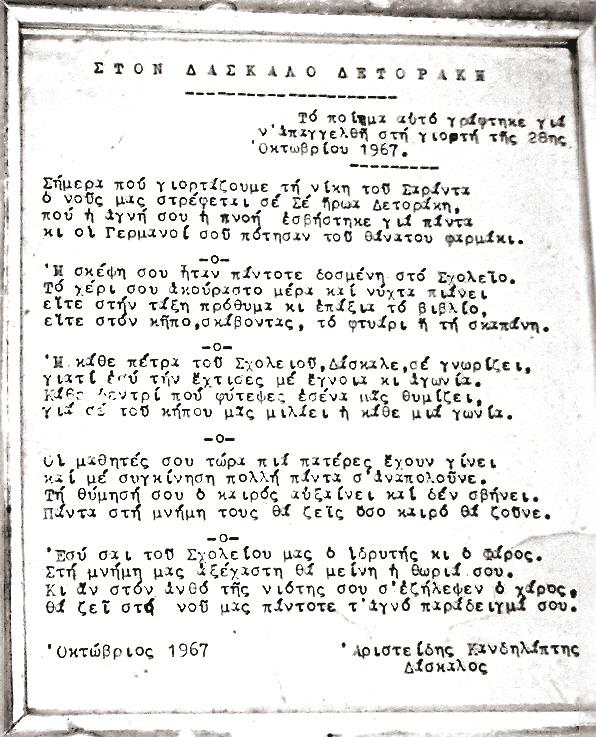 ΣΤΟΝ ΔΑΣΚΑΛΟ ΔΕΤΟΡΑΚΗ
Τό ποίημα αὐτό γράφτηκε γιά
ν'ἀπαγγελθῆ στή γιορτή τῆς 28ης
'Οκτωβρίου 1967.
Σήμερα πού γιορτάζουμε τή νίκη τοῦ Σαράντα
ὁ νοῦς μας στρέφεται σέ Σέ ἥρωα Δετοράκη,
πού ἡ ἁγνή σου ἡ πνοή ἐσβήστηκε γιά πάντα
κι οἱ Γερμανοί σοῦ πότησαν τοῦ θάνατου φαρμάκι.
-ο-
Ἡ σκέψη σου ἦταν πάντοτε δοσμένη στό Σχολεῖο.
Τό χέρι σου ἀκούραστο μέρα καί νύχτα πιάνει
εἴτε στήν τάξη πρόθυμα κι ἐπάξια τό βιβλίο,
εἴτε στόν κῆπο,σκάβοντας, τό φτυάρι ἤ τή σκαπάνη.
-ο-
Ἡ κάθε πέτρα τοῦ Σχολειοῦ,Δάσκαλε,σέ γνωρίζει,
γιατί ἐσύ τήν ἔχτισες μέ ἔγνοια κι ἀγωνία.
Κάθε δεντρί πού φύτεψες ἐσένα μᾶς θυμίζει,
γιά σέ τοῦ κήπου μᾶς μιλάει ἡ κάθε μιά γωνία.
-ο-
Οἱ μαθητές σου τώρα πιά πατέρες ἔχουν γίνει
καί μέ συγκίνηση πολλή πάντα σ'ἀναπολοῦνε.
Τή θύμησή σου ὁ καιρός αὐξαίνει καί δέν σβήνει.
Πάντα στή μνήμη τους θά ζεῖς ὅσο καιρό θά ζοῦνε.
-ο-
'Εσύ σαι τοῦ Σχολείου μας ὁ ἱδρυτής κι ὁ Φάρος.
Στή μνήμη μας ἀξέχαστη θά μείνη ἡ θωριά σου.
Κι ἄν στόν ἀνθό τῆς νιότης σου σ'ἐζήλεψεν ὁ χάρος,
θά ζεῖ στό νοῦ μας πάντοτε τ'ἁγνό παράδειγμά σου.
'Οκτώβριος 1967
'Αριστείδης Κανδηλάπτης
Δάσκαλος